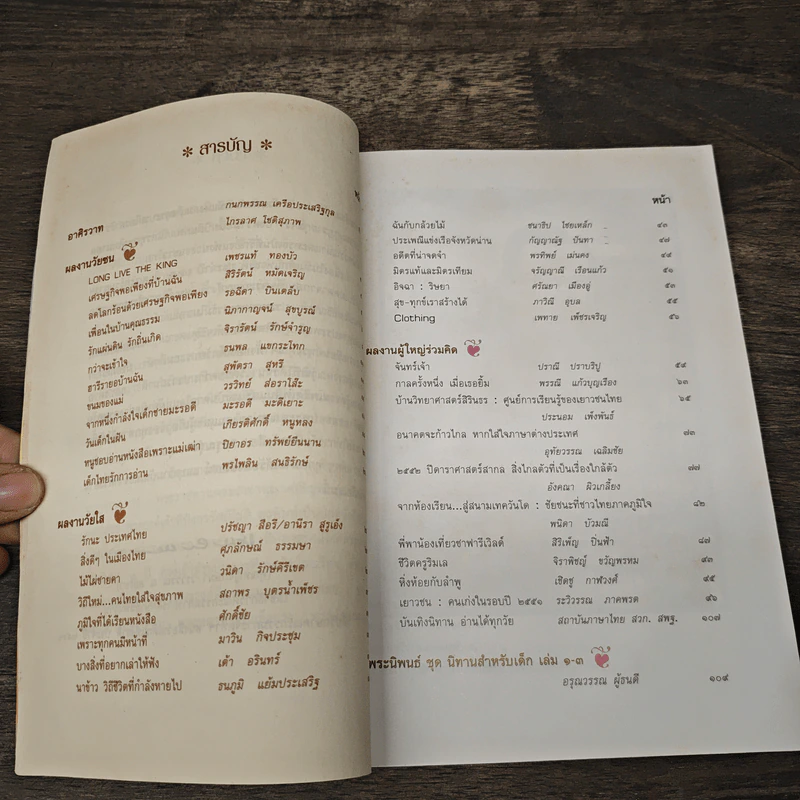 * สารบัญ *
อาศิรวาท กนกพรรณ เครือประเสริฐกุล
ไกรลาศ โชติสุภาพ
ผลงานวัยซน
LONG LIVE THE KING เพชรแท้ ทองบัว
เศรษฐกิจพอเพียงที่บ้านฉัน สิริรัตน์ หมัดเจริญ
ลดโลกร้อนด้วยเศรษฐกิจพอเพียง รอฉีดา บินเตลับ
เพื่อนในบ้านคุณธรรม นิภากาญจน์ สุขบูรณ์
รักแผ่นดิน รักถิ่นเกิด จิรารัตน์ รักษ์จำรูญ
กว่าจะเข้าใจ ธนพล แขกระโทก
ฮารีรายอบ้านฉัน สุพัตรา สุหรี
ขนมของแม่ วรวิทย์ ส่อราโส๊ะ
จากหนึ่งกำลังใจเด็กชายมะรอดี มะรอดี มะดีเยาะ
วันเด็กในฝัน เกียรติศักดิ์ หนูหลง
หนูชอบอ่านหนังสือเพราะแม่เฒ่า ปิยาอร ทรัพย์ยืนนาน
เด็กไทยรักการอ่าน พรไพลิน สนธิรักษ์
ผลงานวัยใส
รักนะ ประเทศไทย ปรัชญา สือรี/อานีรา สูรูเอ้ง
สิ่งดีๆ ในเมืองไทย ศุภลักษณ์ ธรรมษา
ไม้ไผ่ชายคา วนิดา รักษ์คีรีเขต
วิถีใหม่...คนไทยใส่ใจสุขภาพ สถาพร บุตรน้ำเพ็ชร
ภูมิใจที่ได้เรียนหนังสือ ศักดิ์ชัย
เพราะทุกคนมีหน้าที่ มาวิน กิจประชุม
บางสิ่งที่อยากเล่าให้ฟัง เต้า อรินทร์
นาข้าว วิถีชีวิตที่กำลังหายไป ธนภูมิ แย้มประเสริฐ
หน้า
ฉันกับกล้วยไม้ ชนาธิป ไชยเหล็ก ๔๓
ประเพณีแข่งเรือจังหวัดน่าน กัญญาณัฐ ปันทา ๔๗
อดีตที่น่าจดจำ พรทิพย์ เม่นคง ๔๙
มิตรแท้และมิตรเทียม จรัญญาณี เรือนแก้ว ๕๑
อิจฉา : ริษยา ศรัณยา เมืองอู่ ๕๓
สุข-ทุกข์เราสร้างได้ ภาวิณี อุบล ๕๕
Clothing เพทาย เพ็ชรเจริญ ๕๖
ผลงานผู้ใหญ่ร่วมคิด
จันทร์เจ้า ปราณี ปราบริปู ๕๙
กาลครั้งหนึ่ง เมื่อเธอยิ้ม พรรณี แก้วบุญเรือง ๖๓
บ้านวิทยาศาสตร์สิรินธร : ศูนย์การเรียนรู้ของเยาวชนไทย ๖๕
ประนอม เพ็งพันธ์
อนาคตจะก้าวไกล หากใส่ใจภาษาต่างประเทศ ๗๓
อุทัยวรรณ เฉลิมชัย
๒๕๕๒ ปีดาราศาสตร์สากล สิ่งไกลตัวที่เป็นเรื่องใกล้ตัว ๗๗
อังคณา ผิวเกลี้ยง
จากท้องเรียน...สู่สนามเทควันโด : ชัยชนะที่ชาวไทยภาคภูมิใจ ๘๒
พนิดา บัวมณี
พี่พาน้องเที่ยวซาฟารีเวิลด์ สิริเพ็ญ ปิ่นฟ้า ๘๗
ชีวิตครูริมเล จิราพิชญ์ ขวัญพรหม ๙๓
หิ่งห้อยกับลำพู เชิดชู กาฬวงศ์ ๙๕
เยาวชน : คนเก่งในรอบปี ๒๕๕๑ ระวิวรรณ ภาคพรต ๙๖
บันเทิงนิทาน อ่านได้ทุกวัย สถาบันภาษาไทย สวก. สพฐ. ๑๐๗
พระนิพนธ์ ชุด นิทานสำหรับเด็ก เล่ม ๑-๓
อรุณวรรณ ผู้ธนดี ๑๐๙